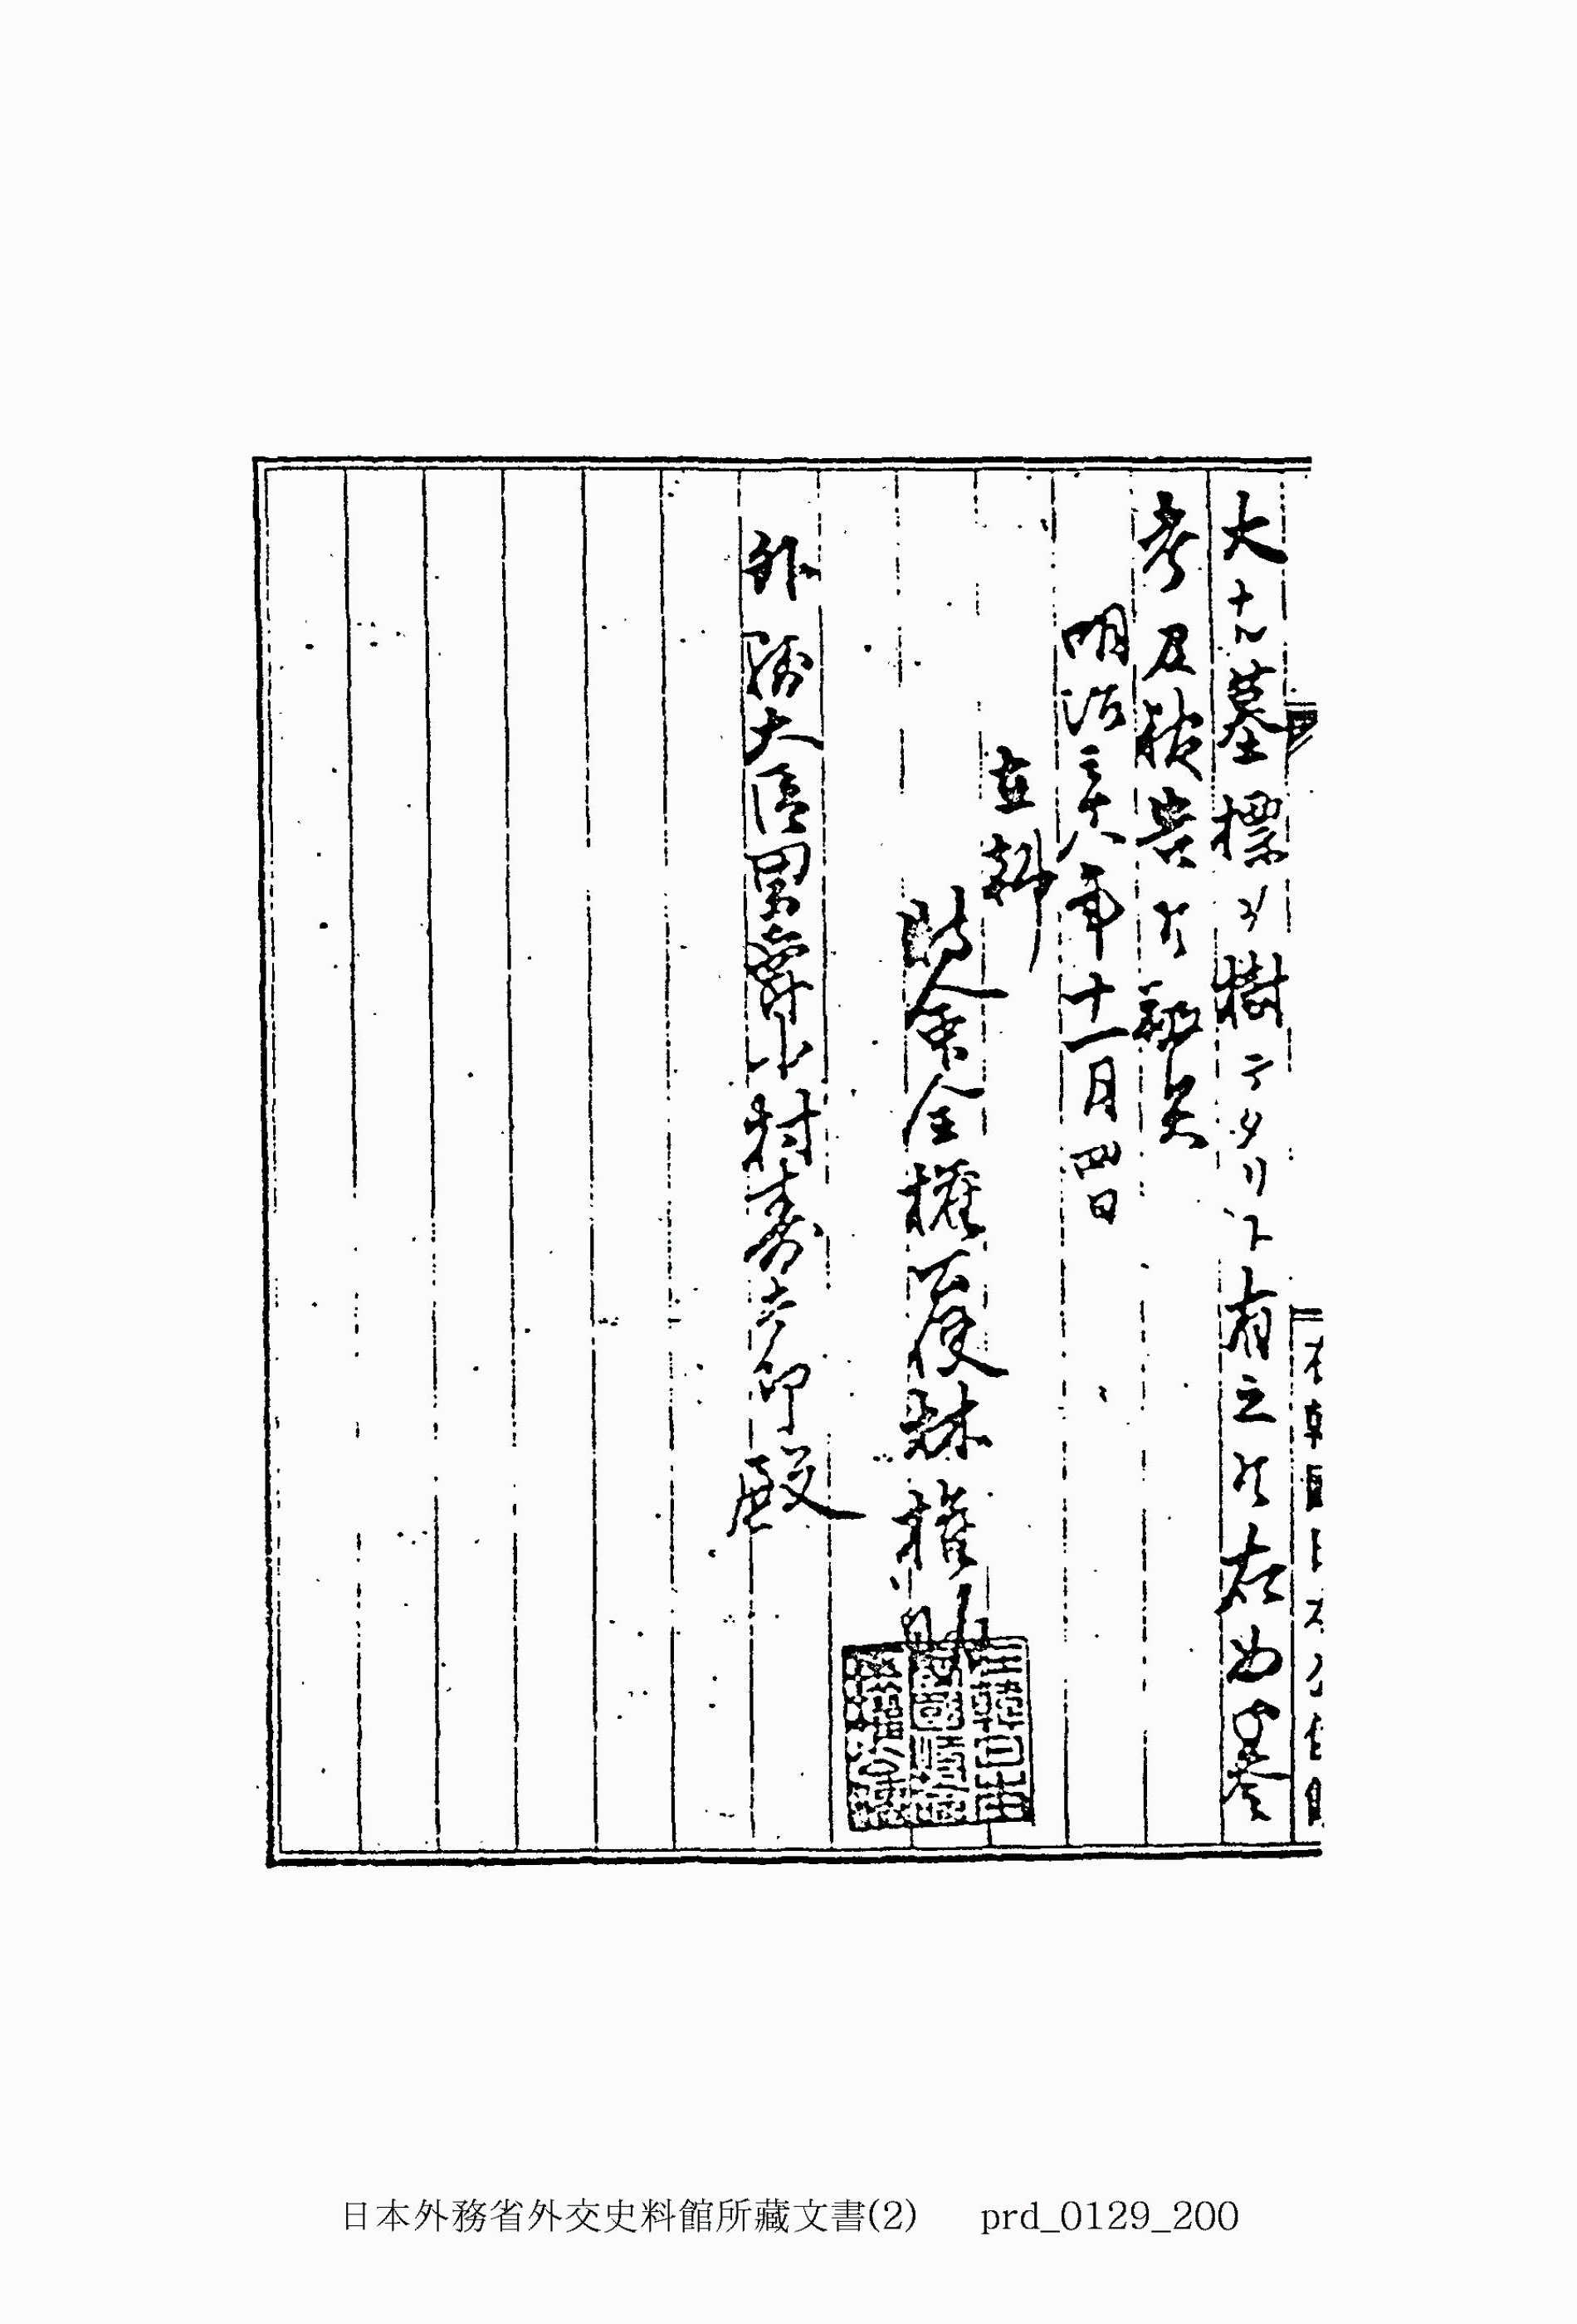 在韓國日本公使館
大ナル墓標ヲ樹テタリト有之候右為御參
考及報告候敬具
明治三十八年十一月四日
在韓
特命全權公使林權助
外務大臣男爵小村壽太郎殿
日本外務省外交史料館所藏文書(2) prd_0129_200